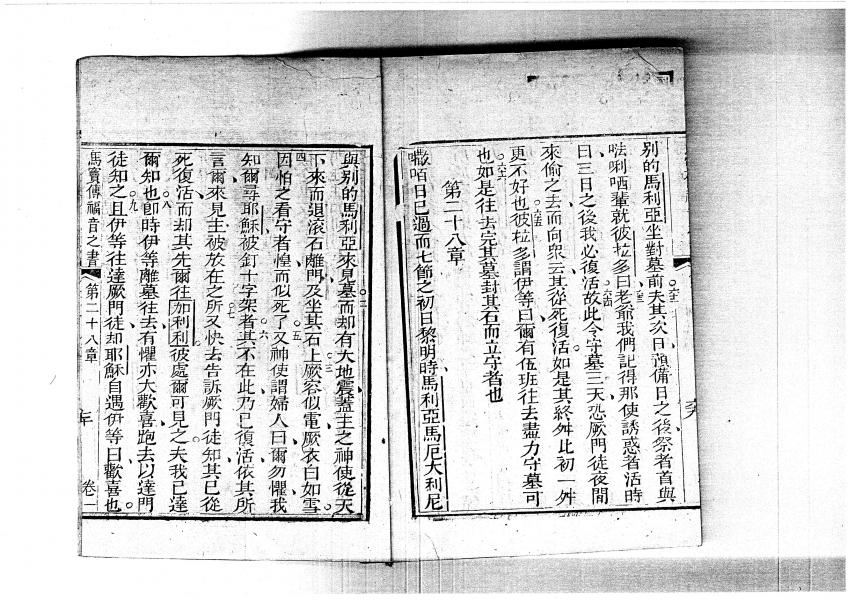 別的馬利亞坐對墓前夫其次日預備日之後祭者首與
𠵽唎哂輩就彼拉多曰老爺我們記得那使誘惑者活時
曰三日之後我必復活故此令守墓三天恐厥門徒夜間
來偷之去而向眾云其從死復活如是其終舛比初一舛
更不好也彼拉多謂伊等曰爾有伍班往去盡力守墓可
也如是往去完其墓封其石而立守者也
第二十八章
日已過而七節之初日黎明時馬利亞馬尼大利尼
與別的馬利亞來見墓而却有大地震蓋主之神使從天
下來而退滾石離門及坐其石上厥容似電厥衣白如雪
因怕之看守者惶而似死了又神使謂婦人曰爾勿懼我
知爾尋耶穌被釘十字架者其不在此乃已復活依其所
言爾來見主被放在之所又快去告訴厥門徒知其已從
死復活而却其先爾往加利利彼處爾可見之夫我已達
爾知也即時伊等離墓往去有懼亦大歡喜跑去以達門
徒知之且伊等往達厥門徒却耶穌自遇伊等曰歡喜也
馬竇傳福音之書
第二十八章
卷一